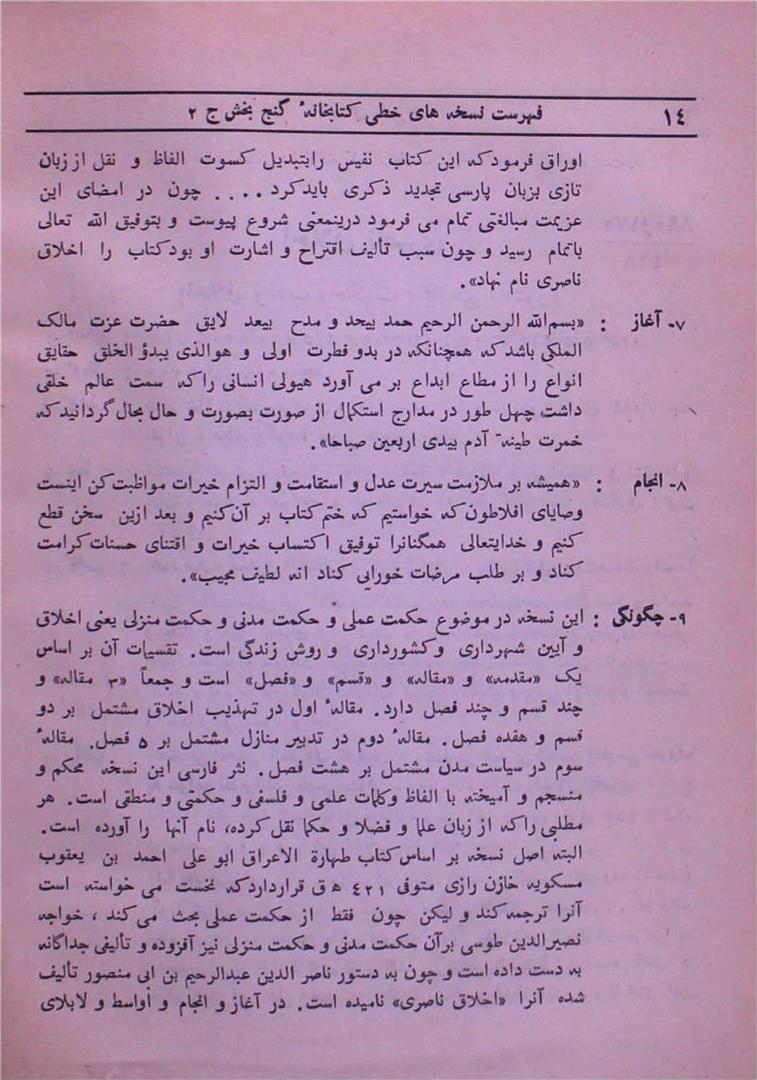 ١٤ فهرست نسخه های خطی کتابخانهٔ گنج بخش ج ۲
اوراق فرمودکه این کتاب نفیس رابتبدیل کسوت الفاظ و نقل از زبان
تازی بزبان پارسی تجدید ذکری بایدکرد .... چون در امضای این
عزیمت مبالغتی تمام می فرمود درینمعنی شروع پیوست و بتوفیق الله تعالی
باتمام رسید و چون سبب تألیف اقتراح و اشارت او بودکتاب را اخلاق
ناصری نام نهاد».
۷- آغاز : «بسم‌الله الرحمن الرحیم حمد بیحد و مدح بیعد لایق حضرت عزت مالک
الملکی باشدکه همچنانکه در بدو فطرت اولی و هوالذی یبدؤ الخلق حقایق
انواع را از مطاع ابداع بر می آورد هیولی انسانی راکه سمت عالم خلقی
داشت چهل طور در مدارج استکمال از صورت بصورت و حال بحال گردانیدکه
خمرت طینهٔ آدم بیدی اربعین صباحا».
۸- انجام : «همیشه بر ملازمت سیرت عدل و استقامت و التزام خیرات مواظبت کن اینست
وصایای افلاطون که خواستیم که ختم کتاب بر آن کنیم و بعد ازین سخن قطع
کنیم و خدایتعالی همگنانرا توفیق اکتساب خیرات و اقتنای حسنات کرامت
کناد و بر طلب مرضات خورایی کناد انه لطیف مجیب».
۹- چگونگی : این نسخه در موضوع حکمت عملی و حکمت مدنی و حکمت منزلی یعنی اخلاق
و آیین شهرداری وکشورداری و روش زندگی است. تقسیات آن بر اساس
یک «مقدمه» و «مقاله» و «قسم» و «فصل» است و جمعاً «۳ مقاله» و
چند قسم و چند فصل دارد. مقالهٔ اول در تهذیب اخلاق مشتمل بر دو
قسم و هفده فصل. مقالهٔ دوم در تدبیر منازل مشتمل بر ۵ فصل. مقالهٔ
سوم در سیاست مدن مشتمل بر هشت فصل. نثر فارسی این نسخه محکم و
منسجم و آمیخته با الفاظ وکلمات علمی و فلسفی و حکمتی و منطقی است. هر
مطلبی راکه از زبان علما و فضلا و حکما نقل کرده، نام آنها را آورده است.
البته اصل نسخه بر اساس کتاب طهارة الاعراق ابو علی احمد بن یعقوب
مسکویه خازن رازی متوفی ٤٢١ ه ق قراردارد که نخست می خواسته است
آنرا ترجمه کند و لیکن چون فقط از حکمت عملی بحث می کند ، خواجه
نصیرالدین طوسی برآن حکمت مدنی و حکمت منزلی نیز آفزوده و تألیفی جداگانه
به دست داده است و چون به دستور ناصر الدین عبدالرحیم بن ابی منصور تألیف
شده آنرا «اخلاق ناصری» نامیده است. در آغاز و انجام و أواسط و لابلای